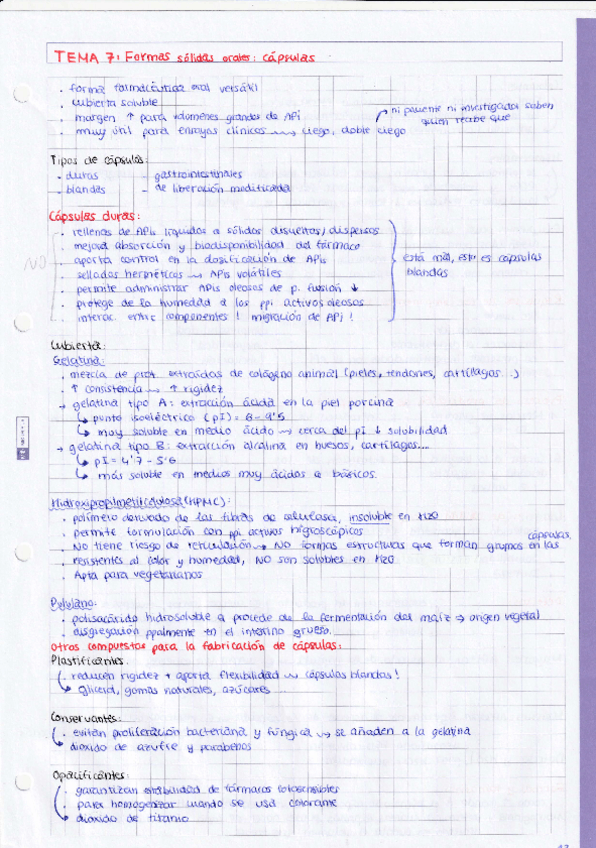 TEMA 7: Formas sólidas orales: cápsulas
. forma farmacéutica oral versátil
. cubierta soluble
. margen ↑ para volúmenes grandes de API
ni paciente ni investigador saben quien recibe que
. muy útil para ensayos clínicos ⟿ ciego, doble ciego
Tipos de cápsulas:
- duras - gastrointestinales
- blandas - de liberación modificada
Cápsulas duras:
. rellenas de APIs líquidos o sólidos disueltos/dispersos
. mejora absorción y biodisponibilidad del fármaco
. aporta control en la dosificación de APIs
NO
está mal, esto es cápsulas blandas
. sellados herméticos ⟿ APIs volátiles
. permite administrar APIs oleosos de p. fusión ↓
. protege de la humedad a los ppi activos oleosos
. interac. entre componentes! migración de API!
Cubierta:
Gelatina:
. mezcla de prot. extraídas de colágeno animal (pieles, tendones, cartílagos...)
. ↑ consistencia ⟿ ↑ rigidez
→ gelatina tipo A: extracción ácida en la piel porcina
↳ punto isoeléctrico (pI) = 8-9'5
↳ muy soluble en medio ácido ⟿ cerca del pI ↓ solubilidad
→ gelatina tipo B: extracción alcalina en huesos, cartílagos...
↳ pI = 4'7 - 5'6
↳ más soluble en medios muy ácidos o básicos.
Hidroxipropilmetilcelulosa (HPMC):
. polímero derivado de las fibras de celulosa, insoluble en H2O
. permite formulación con ppi activos higroscópicos
. No tiene riesgo de reticulación → NO formas estructuras que forman grumos en las cápsulas.
. resistentes al calor y humedad, NO son solubles en H2O
. Apta para vegetarianos
Pululano:
. polisacárido hidrosoluble q procede de la fermentación del maíz → origen vegetal
. disgregación ppalmente en el intestino grueso.
Otros compuestos para la fabricación de cápsulas:
Plastificantes:
. reducen rigidez + aporta flexibilidad ⟿ cápsulas blandas!
↳ glicerol, gomas naturales, azúcares...
Conservantes:
. evitan proliferación bacteriana y fúngica ⟿ se añaden a la gelatina
↳ dióxido de azufre y parabenos
Opacificantes:
. garantizan estabilidad de fármacos fotosensibles
. para homogenizar cuando se usa colorante
↳ dióxido de titanio